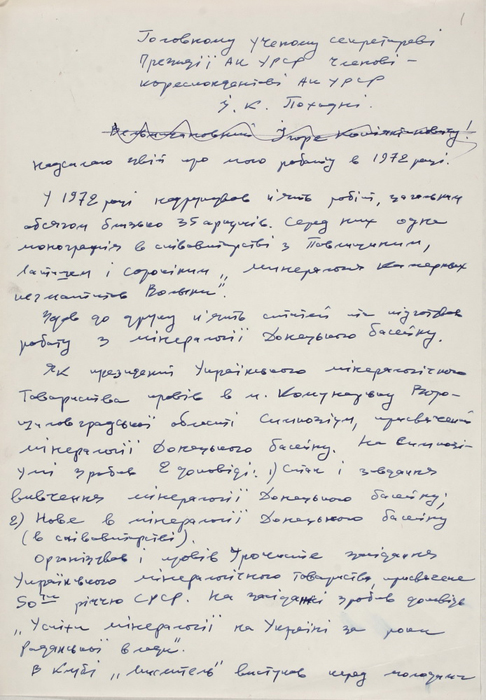 1
Головному ученому секретареві
Президії АН УРСР членові-
кореспондентові АН УРСР
І. К. Походні.
Вельмишановний Ігоре Костянтиновичу!
надсилаю звіт про мою роботу в 1972 році.
У 1972 році надрукував п'ять робіт, загальним
обсягом близько 35 аркушів. Серед них одна
монографія в співавторстві з Павлишиним,
Латишем і Сорокіним „Минералогия камерных
пегматитов Волыни".
Здав до друку п'ять статей та підготував
роботу з мінералогії Донецького басейну.
Як президент Українського мінералогічного
Товариства провів в м. Комунарську Воро-
шиловградської області Симпозіум, присвячений
мінералогії Донецького басейну. На Симпозі-
умі зробив 2 доповіді: 1) Стан і завдання
вивчення мінералогії Донецького басейну;
2) Нове в мінералогії Донецького басейну
(в співавторстві).
Організував і провів Урочисте засідання
Українського мінералогічного товариства, присвячене
50ти річчю СРСР. На засіданні зробив доповідь
„Успіхи мінералогії на Україні за роки
радянської влади".
В Клубі „Мыслитель" виступав перед молоддю